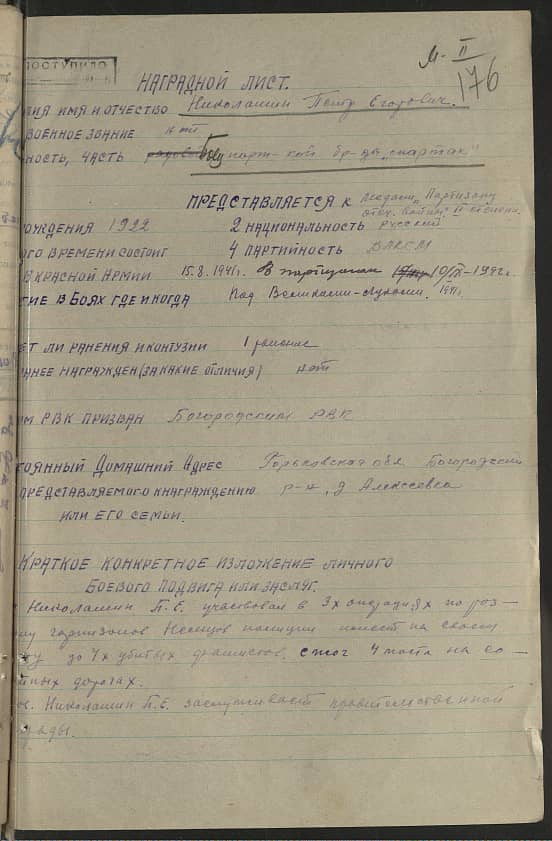 ПОСТУПИЛО
М-II
176
НАГРАДНОЙ ЛИСТ.
ИЛИЯ ИМЯ И ОТЧЕСТВО Николашин Петр Егорович.
ВОЕННОЕ ЗВАНИЕ нет
НОСТЬ, ЧАСТЬ боец парт-кой бр-ды „Спартак"
ПРЕДСТАВЛЯЕТСЯ К медали „Партизану
отеч. войны" II степени.
РОЖДЕНИЯ 1922 2 НАЦИОНАЛЬНОСТЬ русский
ОГО ВРЕМЕНИ СОСТОИТ 4 ПАРТИЙНОСТЬ ВЛКСМ
В КРАСНОЙ АРМИИ 15.8.1941г. В партизанах 10/IX-1942г.
ТИЕ В БОЯХ ГДЕ И КОГДА Под Великими-Луками. 1941г.
ЕТ ЛИ РАНЕНИЯ И КОНТУЗИИ 1 ранение
АНЕЕ НАГРАЖДЕН (ЗА КАКИЕ ОТЛИЧИЯ) нет
ИМ РВК ПРИЗВАН Богородским РВК
ТОЯННЫЙ ДОМАШНИЙ АДРЕС Горьковская обл Богородский
ПРЕДСТАВЛЯЕМОГО К НАГРАЖДЕНИЮ р-н, д Алексеевка
ИЛИ ЕГО СЕМЬИ.
КРАТКОЕ КОНКРЕТНОЕ ИЗЛОЖЕНИЕ ЛИЧНОГО
БОЕВОГО ПОДВИГА ИЛИ ЗАСЛУГ.
Николашин П.Е. участвовал в 3х операциях по роз-
му гарнизонов Немцов полиции имеет на своем
ту до 4х убитых фашистов. сжог 4 моста на со-
ных дорогах.
ов. Николашин П.Е. заслуживает правительственной
рады.